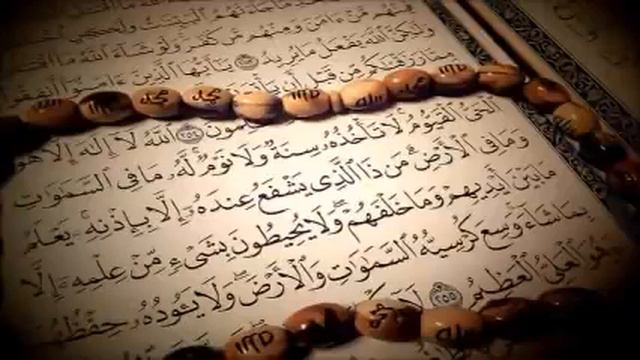 جَآءَتْهُمُ ٱلْبَيِّنَٰتُ وَلَٰكِنِ
فَمِنْهُم مَّنْ ءَامَنَ وَمِنْهُم مَّن كَفَرَ وَلَوْ شَآءَ ٱللَّهُ مَا
وَلَٰكِنَّ ٱللَّهَ يَفْعَلُ مَا يُرِيدُ يَٰٓأَيُّهَا ٱلَّذِينَ ءَامَنُوٓا۟ أَنفِقُوا۟
مِمَّا رَزَقْنَٰكُم مِّن قَبْلِ أَن
محمد محمد الله محمد
٢٥٤ ٱللَّهُ لَآ إِلَٰهَ إِلَّا هُوَ
ٱلْحَىُّ ٱلْقَيُّومُ لَا تَأْخُذُهُۥ سِنَةٌ وَلَا نَوْمٌ لَّهُۥ مَا فِى ٱلسَّمَٰوَٰتِ
وَمَا فِى ٱلْأَرْضِ مَن ذَا ٱلَّذِى يَشْفَعُ عِندَهُۥٓ إِلَّا بِإِذْنِهِۦ يَعْلَمُ
مَا بَيْنَ أَيْدِيهِمْ وَمَا خَلْفَهُمْ وَلَا يُحِيطُونَ بِشَىْءٍ مِّنْ عِلْمِهِۦٓ إِلَّا
بِمَا شَآءَ وَسِعَ كُرْسِيُّهُ ٱلسَّمَٰوَٰتِ وَٱلْأَرْضَ وَلَا يَـُٔودُهُۥ حِفْظُهُمَا
وَهُوَ ٱلْعَلِىُّ ٱلْعَظِيمُ ٢٥٥ لَآ
محمد الله